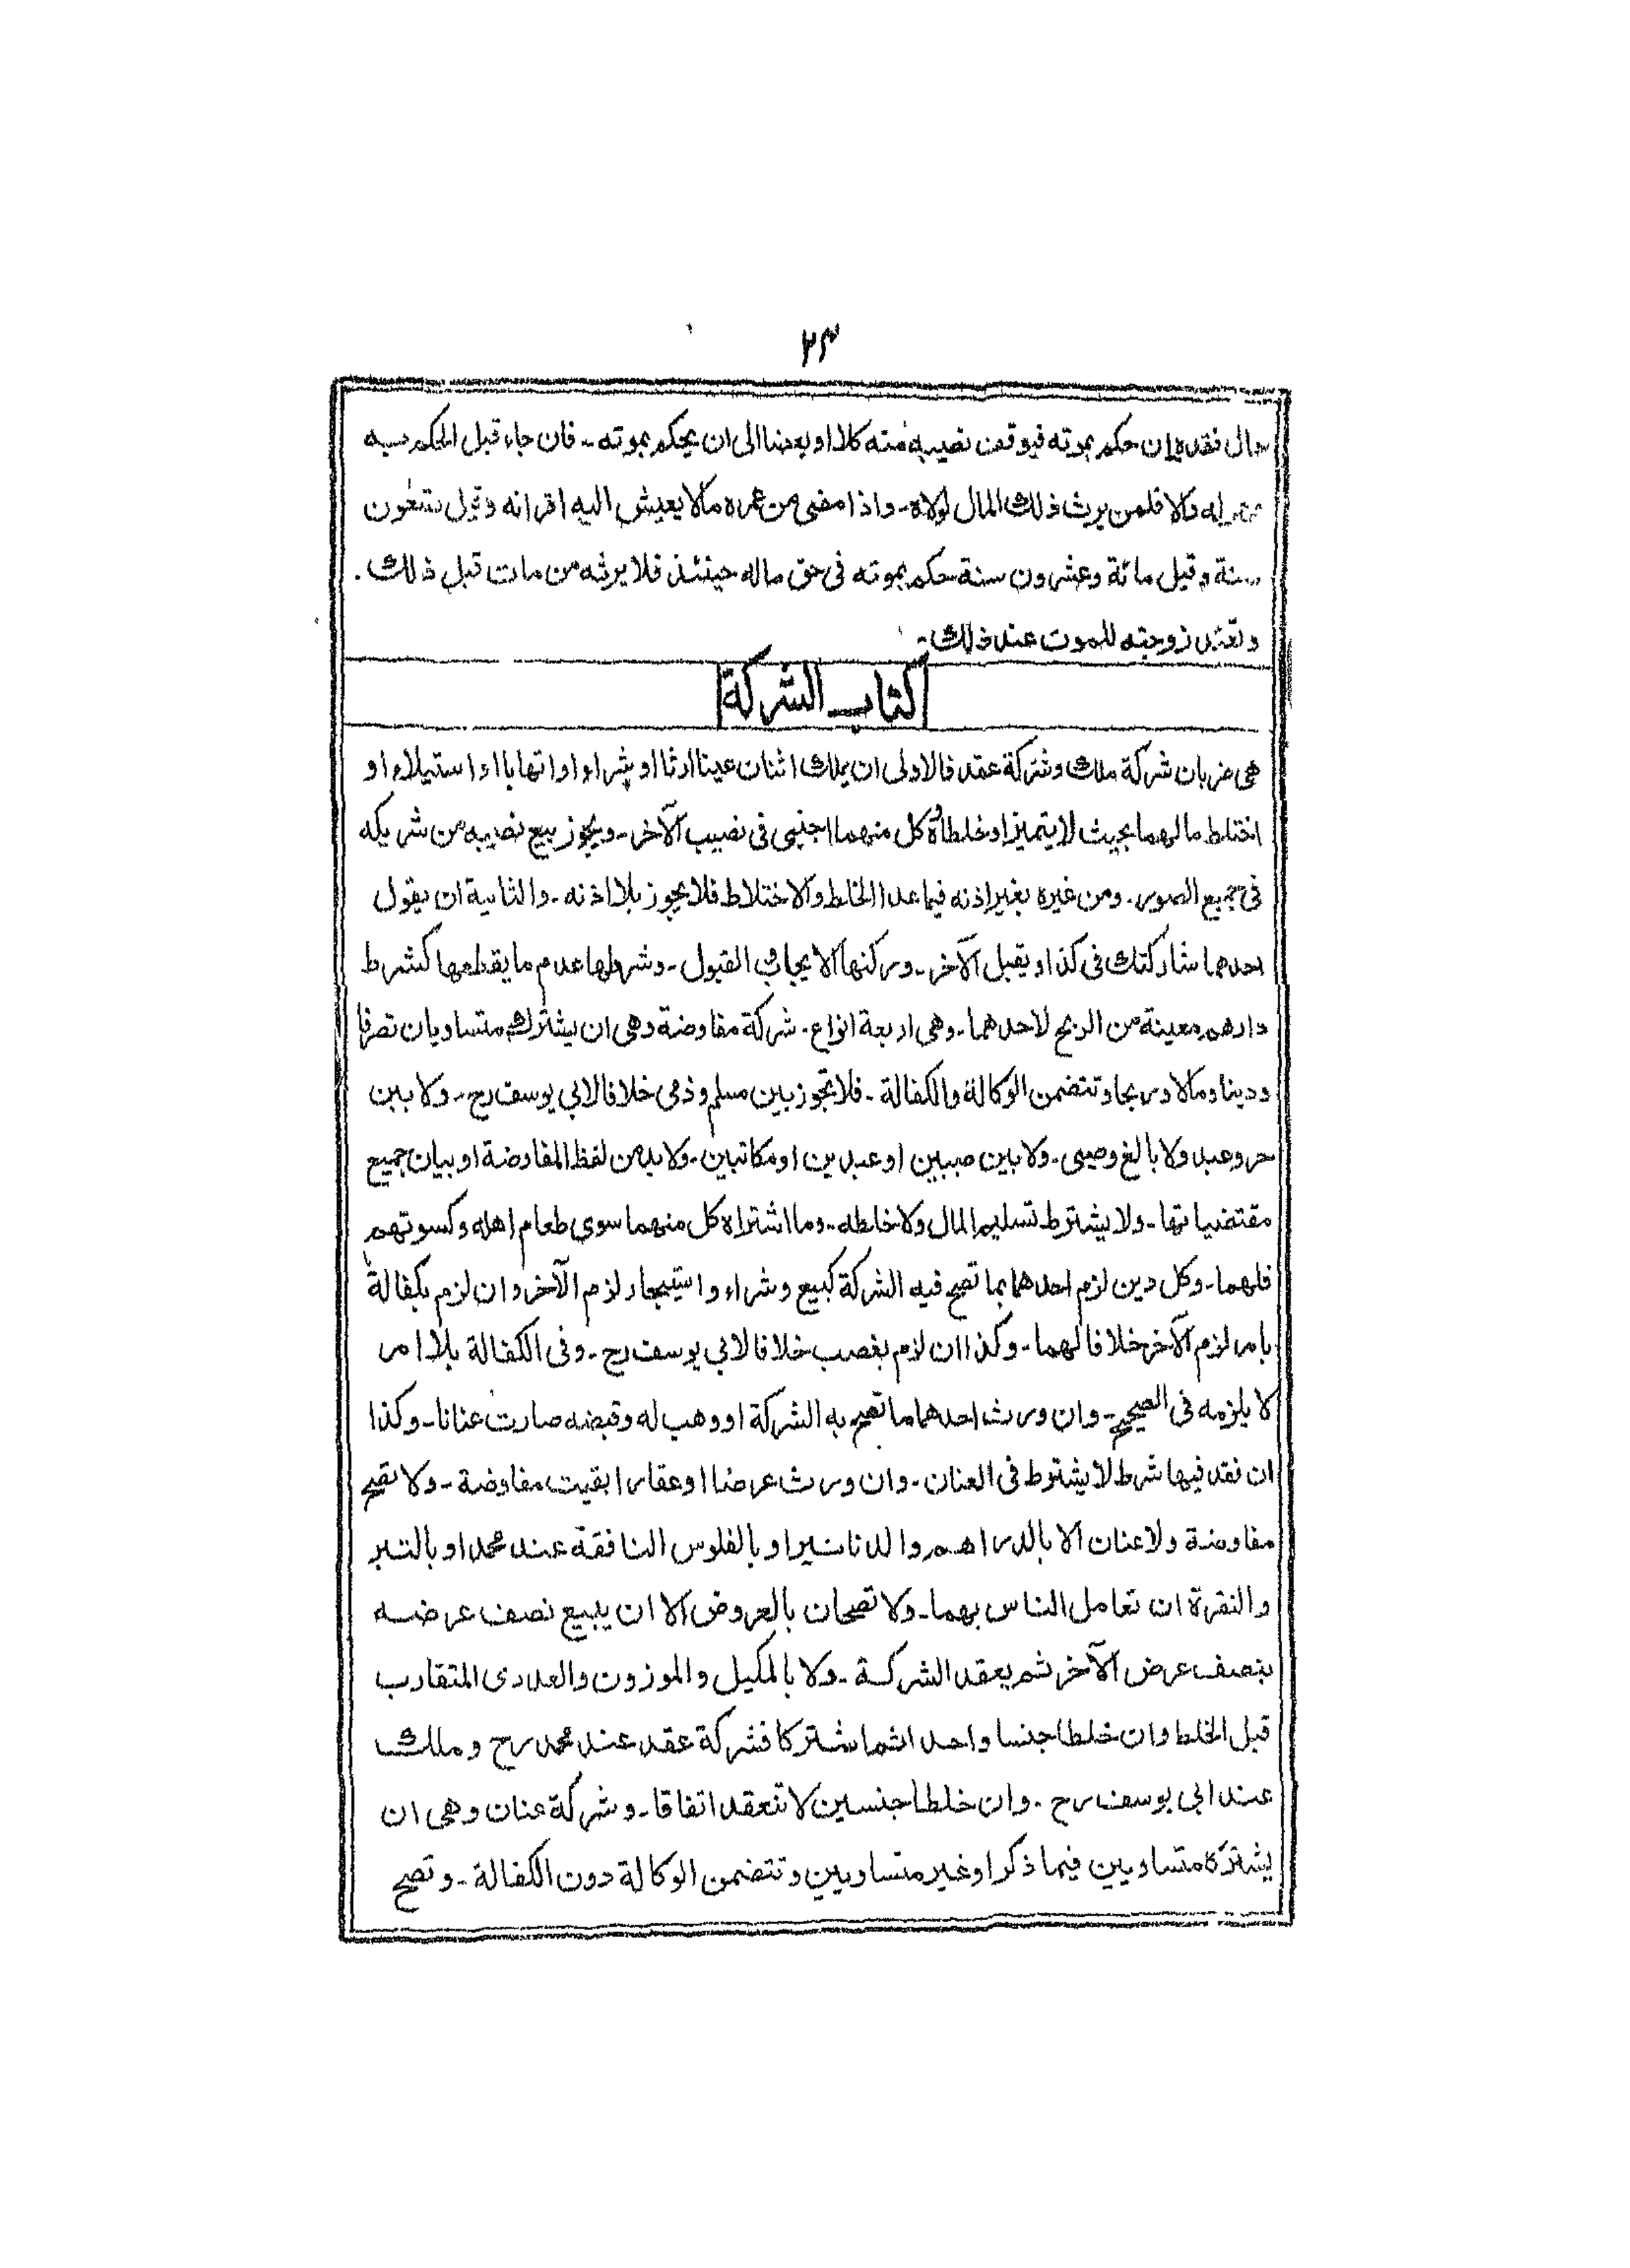 ٢٣
حال فقده ان حكم بموته فيوقف نصيبه منه كلا او بعضا الى ان يحكم بموته ـ فان جاء قبل الحكم به
فهو له والا فلمن يرث ذلك المال لولاه ـ واذا مضى من عمره مالا يعيش اليه اقرانه وقيل تسعون
سنة وقيل مائة وعشرون سنة حكم بموته فى حق ماله حينئذ فلا يرثه من مات قبل ذلك .
وتعتد زوجته للموت عند ذلك ـ
كتاب الشركة
هى ضربان شركة ملك وشركة عقد فالاولى ان يملك اثنان عينا ارثا او شراء او اتهابا او استيلاء او
اختلط مالهما بحيث لا يتميز او خلطاه كل منهما اجنبى فى نصيب الآخر ـ ويجوز بيع نصيبه من شريكه
فى جميع الصور ـ ومن غيره بغير اذنه فيما عدا الخلط والاختلاط فلا يجوز بلا اذنه ـ والثانية ان يقول
احدهما شاركتك فى كذا ويقبل الآخر ـ وركنها الايجاب و القبول ـ وشرطها عدم ما يقطعها كشرط
دارهم معينة من الربح لاحدهما ـ وهى اربعة انواع ـ شركة مفاوضة وهى ان يشترك متساويان تصرفا
ودينا ومالا وربحا وتتضمن الوكالة والكفالة ـ فلا تجوز بين مسلم وذمى خلافا لابي يوسف رح ـ ولا بين
حر وعبد ولا بالغ وصبى ـ ولا بين صبيين او عبدين او مكاتبين ـ ولا بد من لفظ المفاوضة او بيان جميع
مقتضياتها ـ ولا يشترط تسليم المال ولا خلطه ـ وما اشتراه كل منهما سوى طعام اهله وكسوتهم
فلهما ـ وكل دين لزم احدهما بما تصح فيه الشركة كبيع وشراء واستيجار لزم الآخر وان لزم بكفالة
بامر لزم الآخر خلافا لهما ـ وكذا ان لزم بغصب خلافا لابي يوسف رح ـ وفى الكفالة بلا امر
لا يلزمه فى الصحيح ـ وان ورث احدهما ما تصح به الشركة او وهب له وقبضه صارت عنانا ـ وكذا
ان فقد فيها شرط لا يشترط فى العنان ـ وان ورث عرضا او عقارا بقيت مفاوضة ـ ولا تصح
مفاوضة ولا عنان الا بالدراهم والدنانير او بالفلوس النافقة عند محمد او بالتبر
والنقرة ان تعامل الناس بهما ـ ولا تصحان بالعروض الا ان يبيع نصف عرضه
بنصف عرض الآخر ثم يعقد الشركة ـ ولا بالمكيل والموزون والعددى المتقارب
قبل الخلط وان خلطا جنسا واحدا ثما شتركا فشركة عقد عند محمد رح وملك
عند ابي يوسف رح ـ وان خلطا جنسين لا تنعقد اتفاقا ـ وشركة عنان وهى ان
يشتركا متساويين فيما ذكر او غير متساويين وتتضمن الوكالة دون الكفالة ـ وتصح